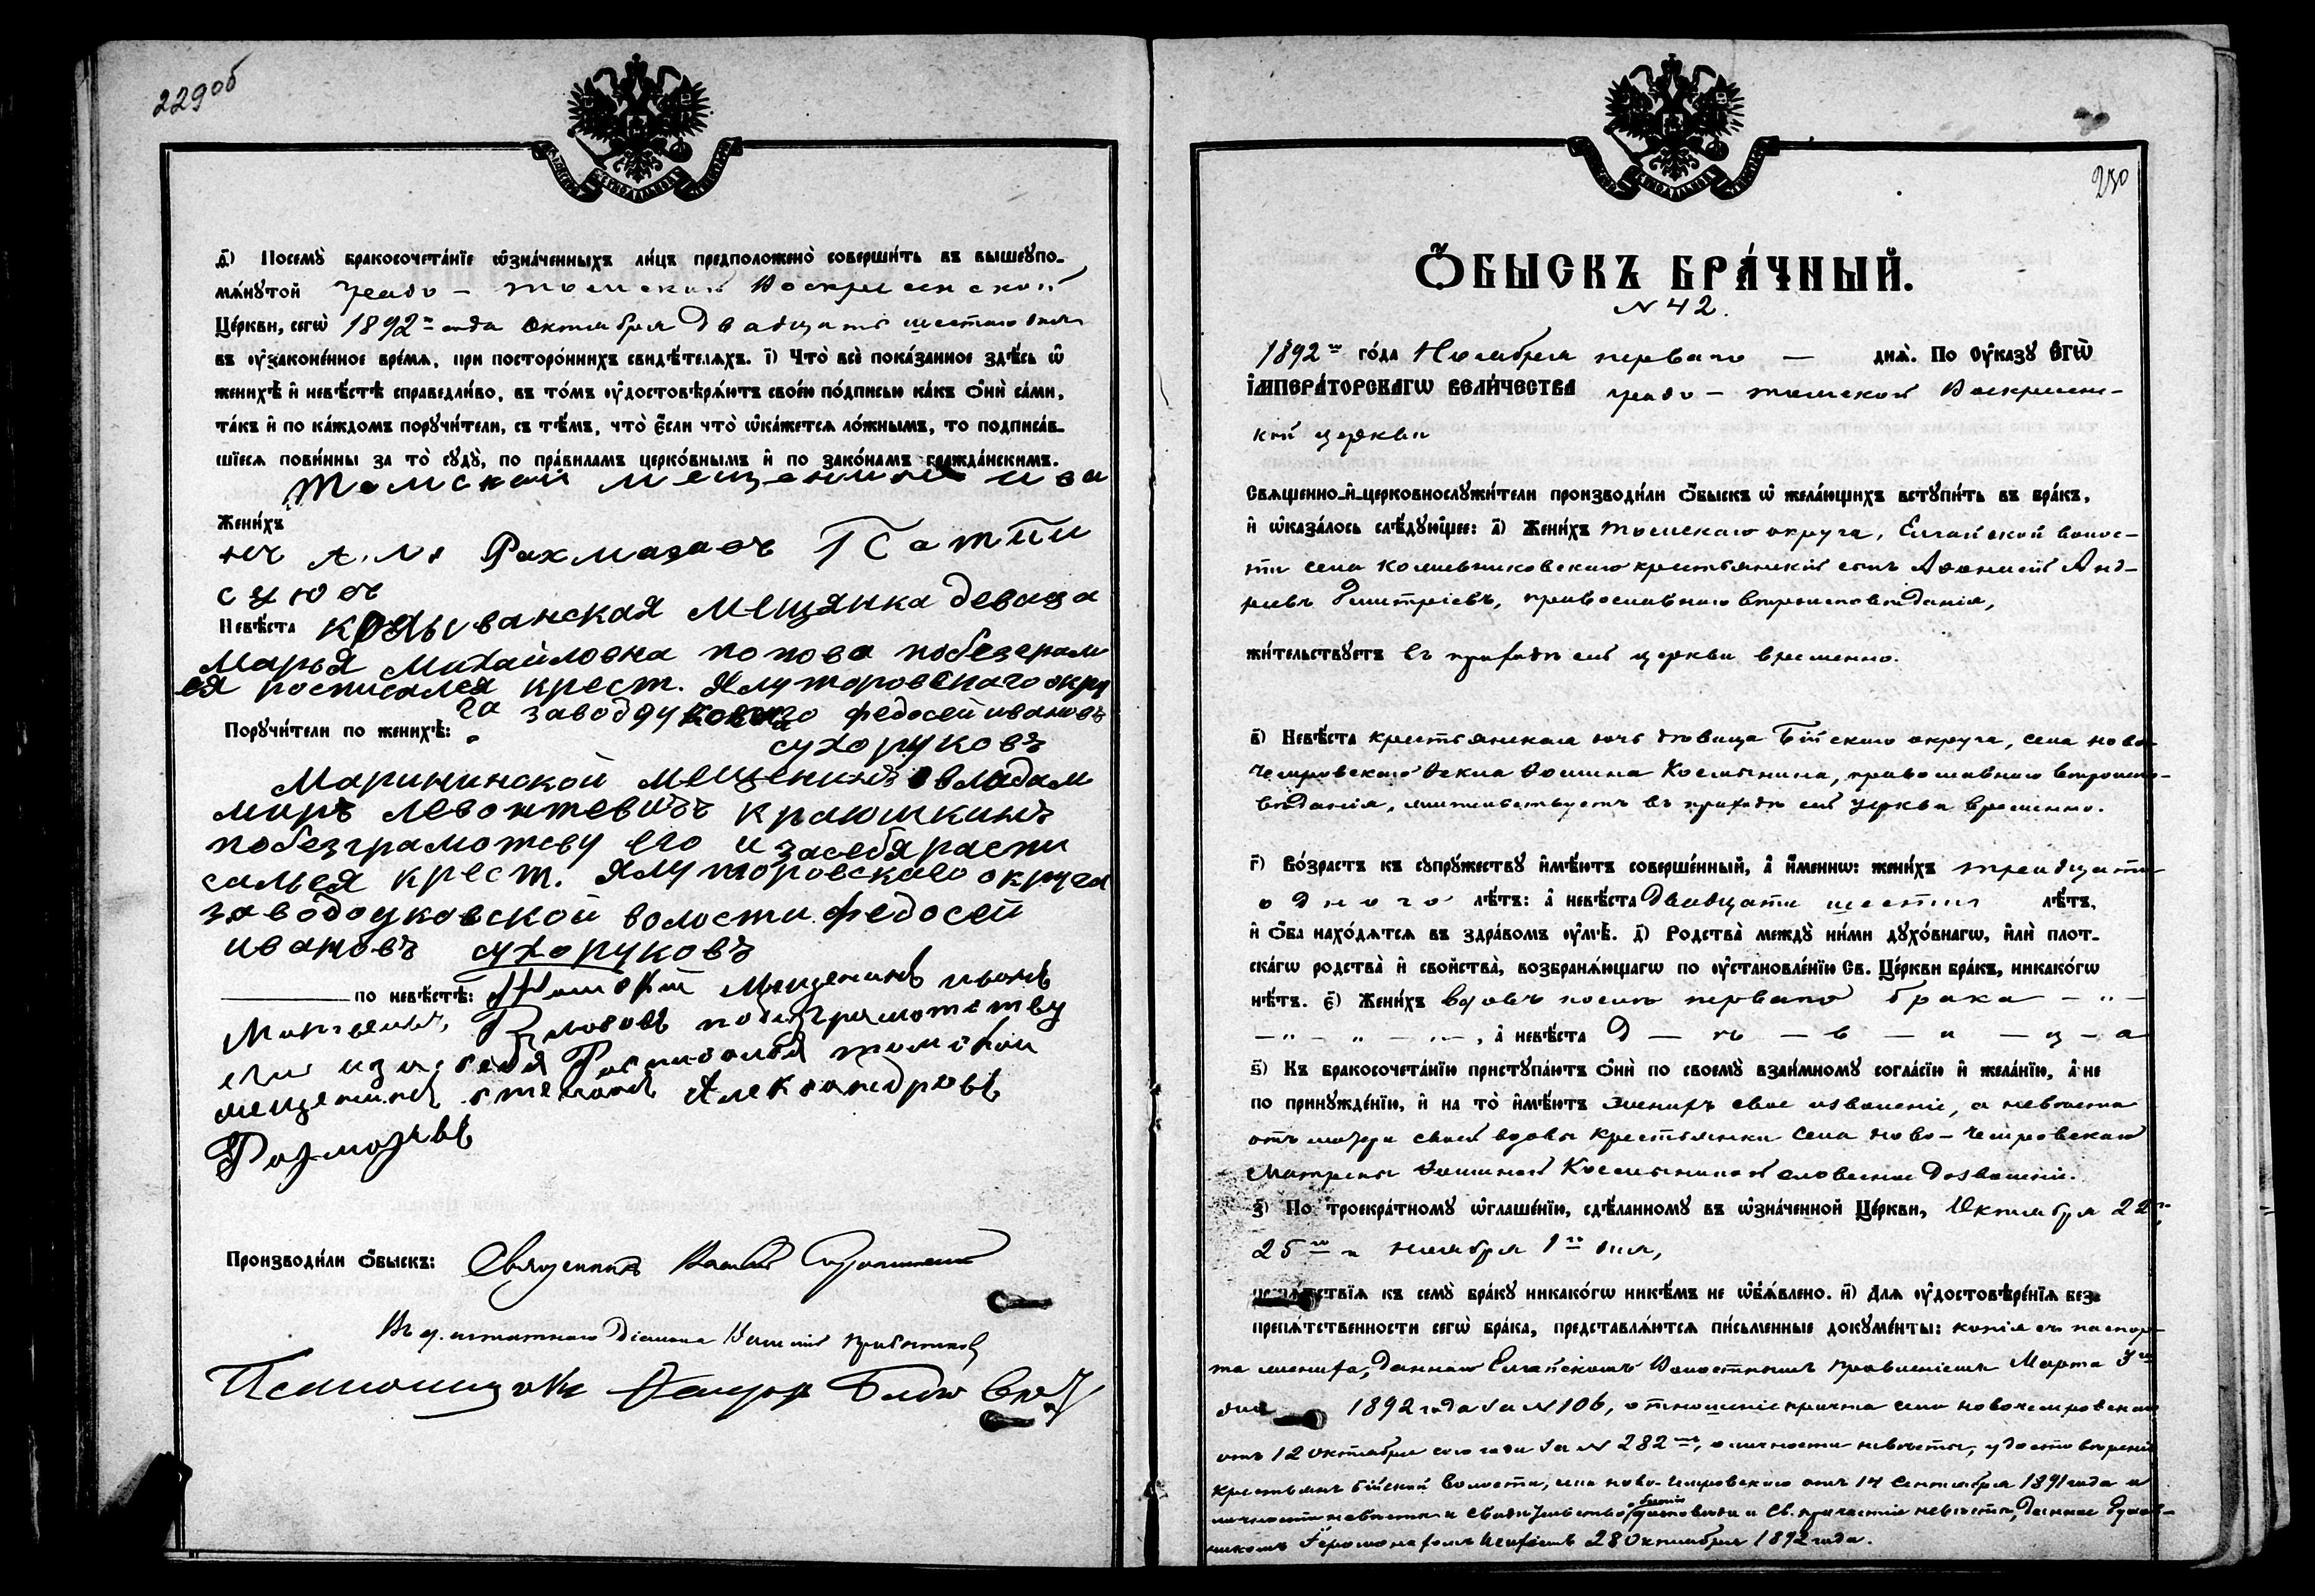 229об
ѳ҃) Посемꙋ̀ бракосочета́нїе ѡ҆зна́ченныхъ ли́цъ предположено̀ соверши́ть въ вышеꙋпо-
мѧ́нꙋтой градо - томской Воскресенской
Це́ркви, сегѡ̀ 1892 года Октября двадцать шестаго дня
въ оу҆законе́нное вре́мѧ, при посторо́ннихъ свидѣ́телѧхъ. і҃) Что̀ всѐ пока́занное здѣ́сь ѡ҆
женихѣ̀ и҆ невѣ́стѣ справедли́во, въ то́мъ оу҆достовѣрѧ́ютъ свое́ю по́дписью ка́къ ѻ҆нѝ са́ми,
та́къ и҆ по ка́ждомъ порꙋчи́тели, съ тѣ́мъ, что̀ є҆́сли что̀ ѡ҆ка́жетсѧ ло́жнымъ, то подписа́в-
шїесѧ пови́нны за то̀ сꙋдꙋ̀, по пра́виламъ церко́внымъ и҆ по зако́намъ гражда́нскимъ.
Томской мещенинъ
Жени́хъ
Невѣ́ста колыванская мещянка девица
Марья Михайловна попова побезграм
ея росписался крест. Ялуторовскаго окру
га заводоуковскаго федосей ивановъ
Порꙋчи́тели по женихѣ̀: сухоруковъ
Маринин­ской мещенинъ владим
миръ левонтевичъ краюшкинъ
побезграмотеву его и засебя распи
салься крест. Ялуторовскаго округа
заводоуковской волости федосей
ивановъ сухоруковъ
по невѣ́стѣ: Томской Мещенинъ
побезграмотетву
его изасебя Росписалься томской
мещенинъ степанъ Александровъ
Производи́ли ѻ҆́быскъ: Священникъ
В. д. штатнаго Діакона
Псаломщикъ
230
Ѻ҆́БЫСКЪ БРА́ЧНЫЙ.
№ 42.
1892го го́да Ноября перваго — днѧ̀. По Оу҆ка́зꙋ Є҆ГѠ̀
І҆МПЕРА́ТОРСКАГѠ ВЕЛИ́ЧЕСТВА градо - томской Воскресенс-
кой церкви
Свѧще́нно-и҆-церковнослꙋжи́тели производи́ли ѻ҆́быскъ ѡ҆ жела́ющихъ встꙋпи́ть въ бра́къ,
и҆ ѡ҆каза́лось слѣ́дꙋющее: а҃) Жени́хъ томскаго округа, Елгайской волос-
ти села Кожевниковскаго крестьянскій сынъ Афанасій Анд-
реевъ Дмитріевъ, православнаго вѣроисповѣданія,
жи́тельствꙋетъ въ приходѣ сей церкви временно.
в҃) Невѣ́ста крестьянская дочь дѣвица Бійскаго округа, села ново-
чемровскаго Ѳекла Ѳомина Космынина, православнаго вѣроиспо-
вѣданія, жительствуетъ въ приходѣ сей церкви временно.
г҃) Во́зрастъ къ сꙋпрꙋ́жествꙋ и҆мѣ́ютъ соверше́нный, а҆ и҆́меннѡ: жени́хъ тридцати
одного лѣ́тъ: а҆ невѣ́ста двадцати шести лѣ́тъ,
и҆ ѻ҆́ба нахо́дѧтсѧ въ здра́вомъ оу҆мѣ̀. д҃) Родства̀ междꙋ̀ ни́ми дꙋхо́внагѡ, и҆лѝ пло́т-
скагѡ родства̀ и҆ сво́йства, возбранѧ́ющагѡ по оу҆становле́нїю Св. Це́ркви бра́къ, никако́гѡ
нѣ́тъ. є҃) Жени́хъ вдовъ послѣ перваго брака — " —
— " — " — " —, а҆ невѣ́ста д — ѣ — в — и — ц — а
ѕ҃) Къ бракосочета́нїю пристꙋпа́ютъ ѻ҆нѝ по своемꙋ̀ взаи́мномꙋ согла́сїю и҆ жела́нїю, а҆ не
по принꙋжде́нїю, и҆ на то̀ и҆мѣ́ютъ женихъ свое изволеніе, а невѣста
отъ матери своей вдовы крестьянки села ново-чемровскаго
Матрены Ѳоминой Космыниной словесное дозволеніе.
з҃) По троекра́тномꙋ ѡ҆глаше́нїю, сдѣ́ланномꙋ въ ѡ҆зна́ченной Це́ркви, Октября 22го,
25го и ноября 1го дня,
препѧ́тствїѧ къ семꙋ̀ бра́кꙋ никако́гѡ никѣ́мъ не ѡ҆б̾ѧ́влено. и҃) Длѧ оу҆достовѣре́нїѧ без-
препѧ́тственности сегѡ̀ бра́ка, представлѧ́ютсѧ пи́сьменные докꙋме́нты: копія съ паспор-
та жениха, даннаго Елгайскимъ Волостнымъ Правленіемъ Марта 3го
дня 1892 года за № 106, отношеніе причта села новочемровскаго
отъ 12 Октября сего года за № 282мъ, о личности невѣсты, удостовѣреніе
крестьянъ Бійской волости, села ново-чемровскаго отъ 14 Сентября 1891 года о
личности невѣсты и свидѣтельство о бытіи у исповѣди и Св. причастія невѣсты, данное Духов-
никомъ Іеромонахомъ 28 Октября 1892 года.